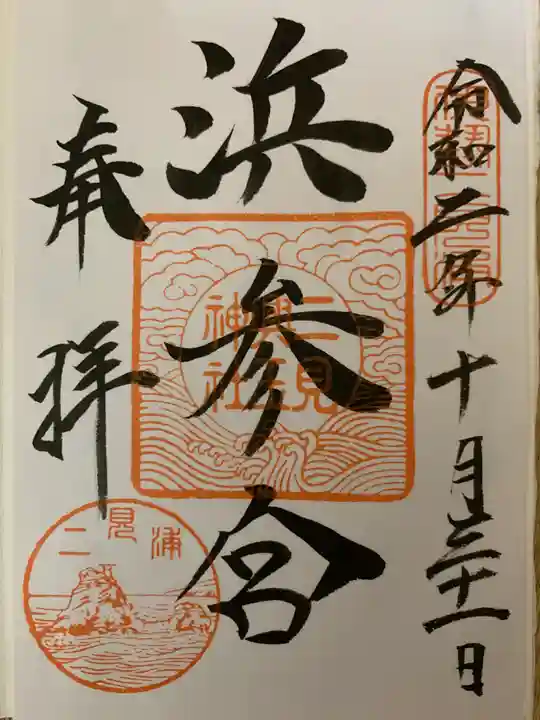 令和二年十月三十一日
浜参宮
奉拝
二見
興玉
神社
二見浦